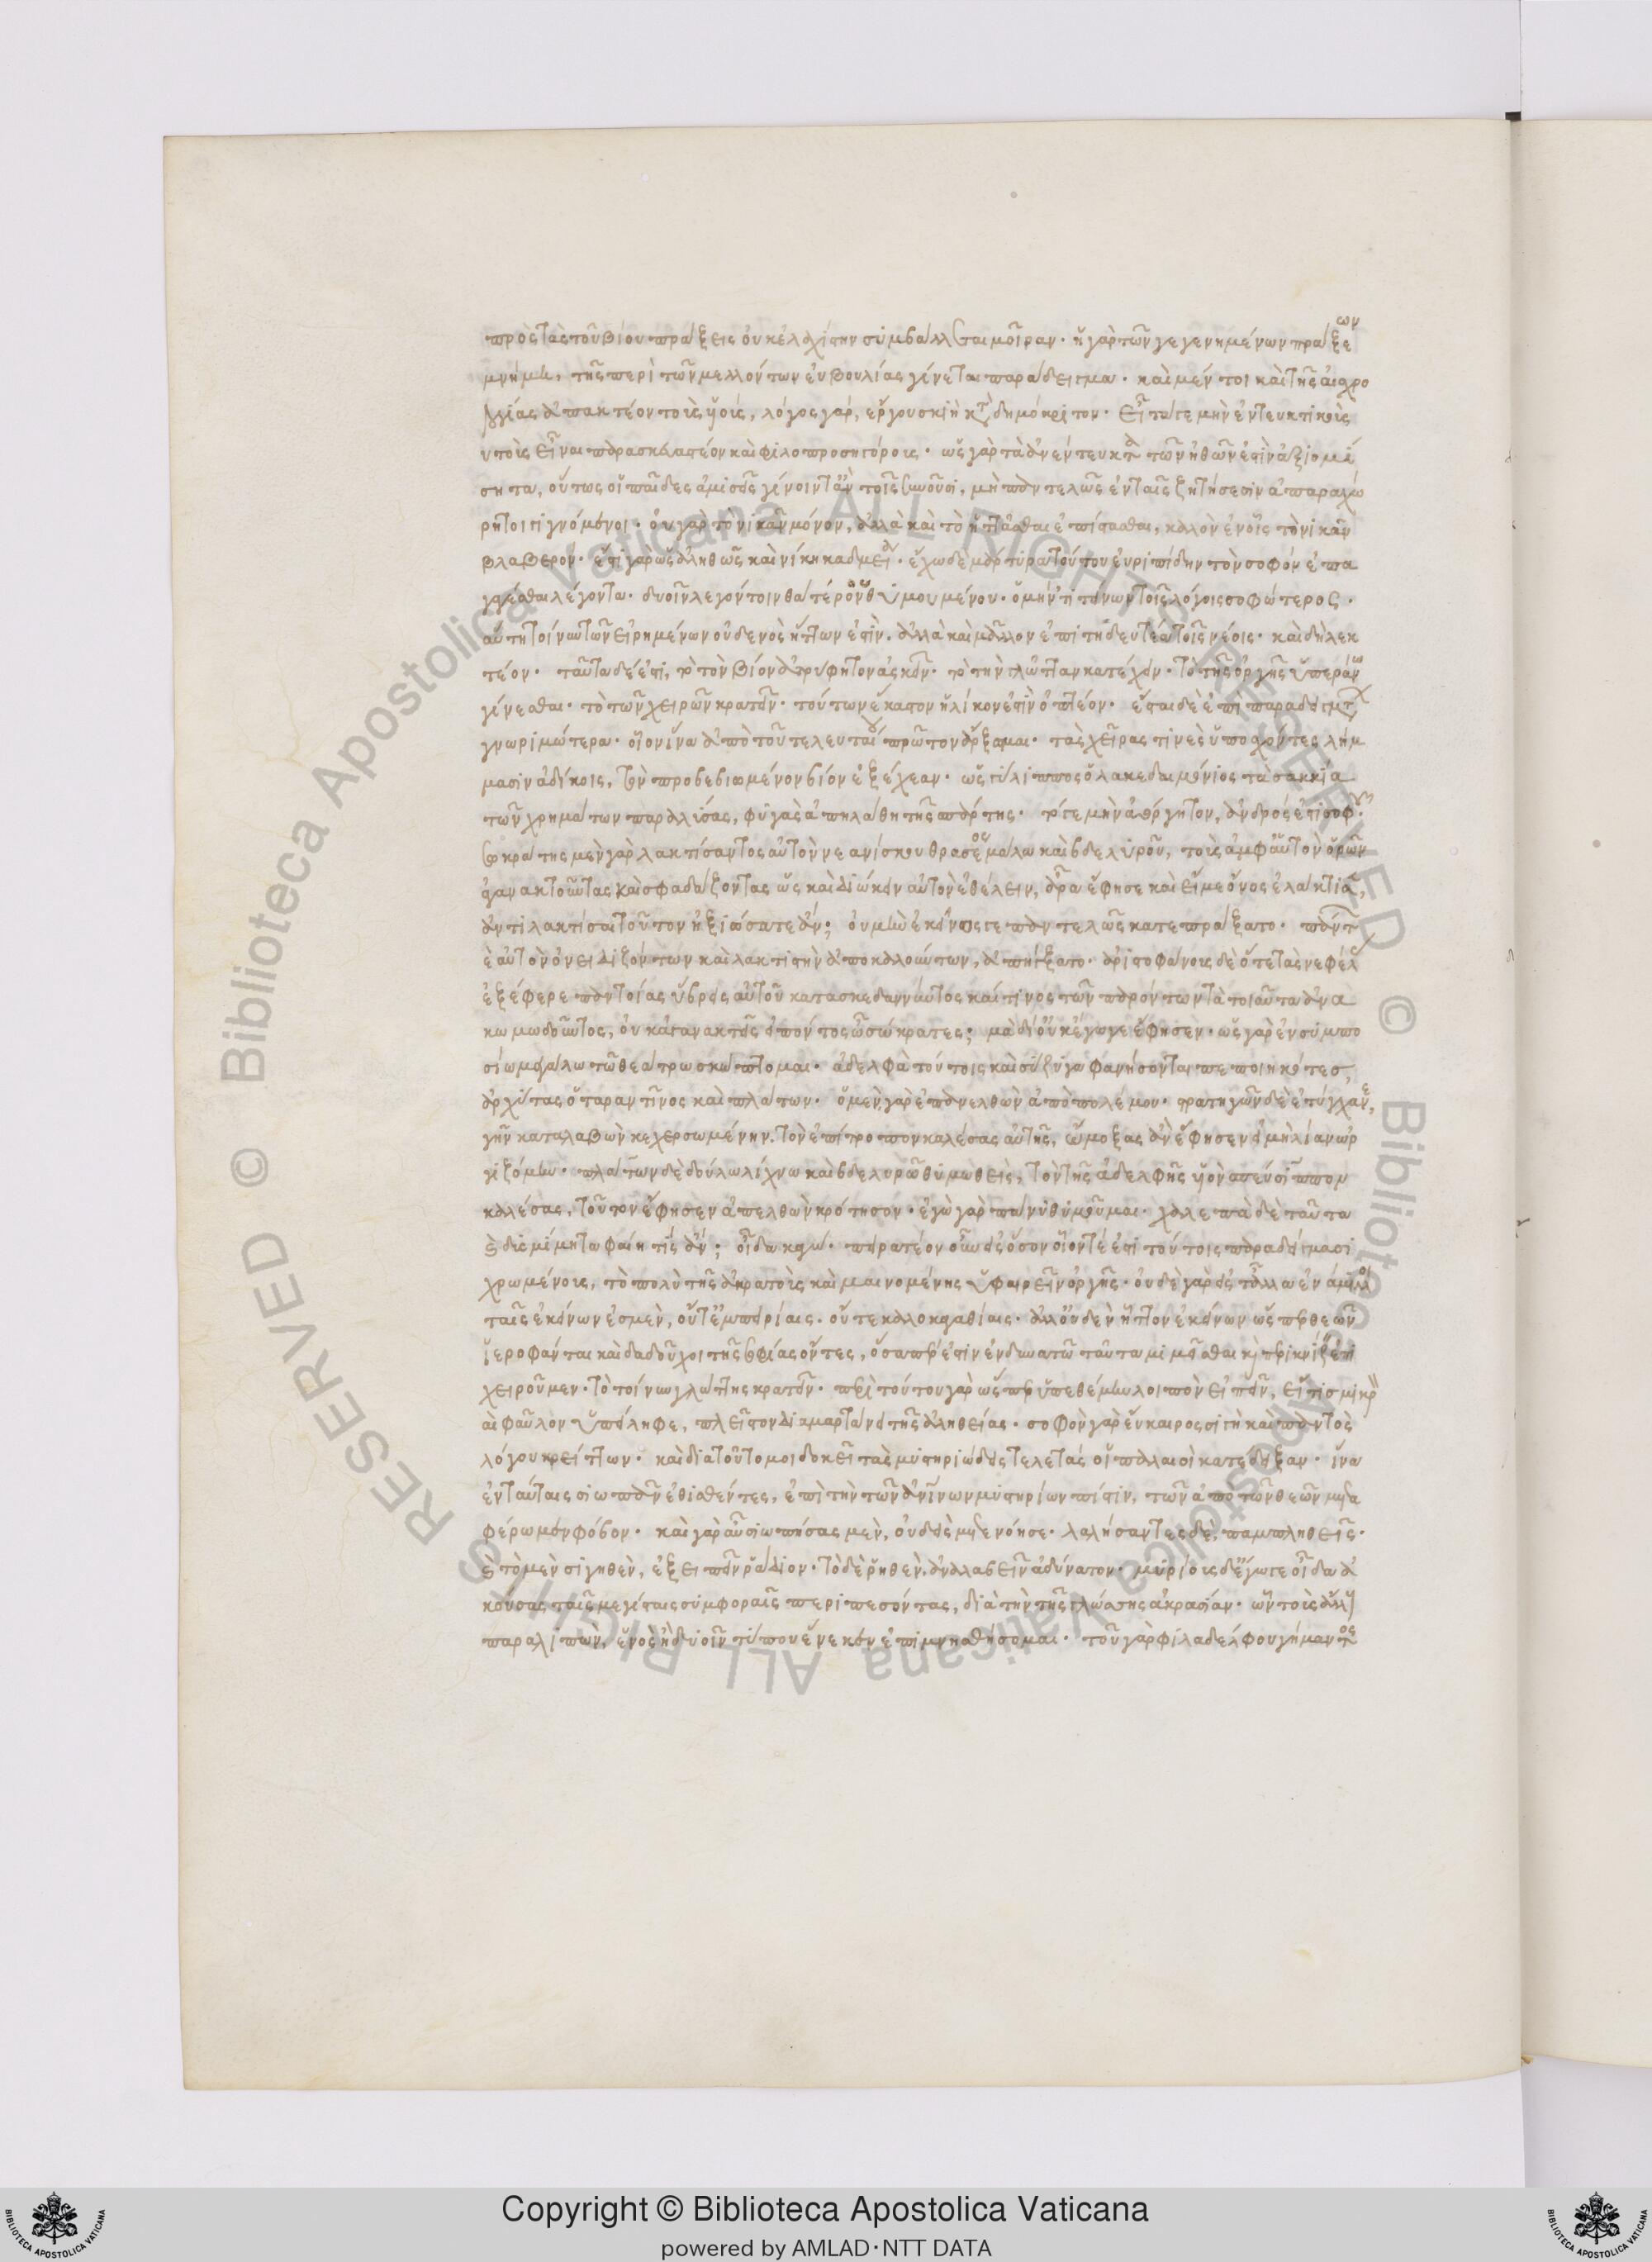 πρὸς τὰς τοῦ βίου πράξεις οὐκ ἐλαχίστην συμβάλλεται μοῖραν. ἡ γὰρ τῶν γεγενημένων πράξεων
μνήμη, τῆς περὶ τῶν μελλόντων εὐβουλίας γίνεται παράδειγμα. καὶ μέν τοι καὶ τῆς αἰσχρο
λογίας ἀπακτέον τοὺς υἱούς, λόγος γάρ, ἔργου σκιὴ κατὰ δημόκριτον. εἶτά γε μὴν ἐντευκτικοὺς
αὐτοὺς εἶναι παρασκευαστέον καὶ φιλοπροσηγόρους. ὡς γὰρ τὰ ἀνέντευκτα τῶν ἠθῶν ἐστὶν ἀξιομί
σητα, οὕτως οἱ παῖδες ἀμισεῖς γένοιντ' ἂν τοῖς συνοῦσι, μὴ παντελῶς ἐν ταῖς ζητήσεσιν ἀπαραχώ
ρητοι γιγνόμενοι. οὐ γὰρ τὸ νικᾶν μόνον, ἀλλὰ καὶ τὸ ἡττᾶσθαι ἐπίστασθαι, καλὸν ἐν οἷς τὸ νικᾶν
βλαβερόν. ἔστι γὰρ ὡς ἀληθῶς καὶ νίκη καδμεία. ἔχω δὲ μάρτυρα τούτου εὐριπίδην τὸν σοφὸν ἐπα
γαγέσθαι λέγοντα. δυοῖν λεγόντοιν θατέρου θυμουμένου. ὁ μὴ ἀντιτείνων τοῖς λόγοις σοφώτερος.
αὕτη τοίνυν τῶν εἰρημένων οὐδενὸς ἧττων ἐστὶν. ἀλλὰ καὶ μᾶλλον ἐπιτηδευτέα τοῖς νέοις. καὶ δὴ λεκ
τέον. ταῦτα δέ ἐστι, τὸ τὸν βίον ἀτρύφητον ἀσκεῖν. τὸ τὴν γλῶτταν κατέχειν. τὸ τῆς ὀργῆς ὑπεράνω
γίνεσθαι. τὸ τῶν χειρῶν κρατεῖν. τούτων ἕκαστον ἡλίκον ἐστὶν ὀπτέον. ἔσται δὲ ἐπὶ παραδειγμάτων
γνωριμώτερα. οἷον ἵνα ἀπὸ τοῦ τελευταίου πρῶτον ἄρξωμαι. τὰς χεῖράς τινες ὑποσχόντες λήμ
μασιν ἀδίκοις, τὸν προβεβιωμένον βίον ἐξέχεαν. ὡς γύλιππος ὁ λακεδαιμόνιος τὰ σακκία
τῶν χρημάτων παραλύσας, φυγὰς ἀπηλάθη τῆς σπάρτης. τό γε μὴν ἀόργητον, ἀνδρός ἐστι σοφοῦ.
σωκράτης μὲν γὰρ λακτίσαντος αὐτὸν νεανίσκου θρασέος μάλα καὶ βδελυροῦ, τοὺς ἀμφ' αὐτὸν ὁρῶν
ἀγανακτοῦντας καὶ σφαδάζοντας ὡς καὶ διώκειν αὐτὸν ἐθέλειν, ἆρα ἔφησε καὶ εἴ με ὄνος ἐλάκτισεν,
ἀντιλακτίσαι τοῦτον ἠξιώσατε ἄν; οὐ μὴν ἐκεῖνός γε παντελῶς κατεπράξατο. πάντων
ἑ αὐτὸν ὀνειδιζόντων καὶ λακτιστὴν ἀποκαλούντων, ἀπήγξατο. ἀριστοφάνους δὲ ὅτε τὰς νεφέλας
ἐξέφερε παντοίας ὕβρεις αὐτοῦ κατασκεδαννύντος καί τινος τῶν παρόντων τὰ τοιαῦτα ἀνα
κωμωδοῦντος, οὐκ ἀγανακτεῖς εἰπόντος ὦ σώκρατες; μὰ δί' οὐκ ἔγωγε ἔφησεν. ὡς γὰρ ἐν συμπο
σίω μεγάλω τῶ θεάτρω σκώπτομαι. ἀδελφὰ τούτοις καὶ σύζυγα φανήσονται πεποιηκότες,
ἀρχύτας ὁ ταραντῖνος καὶ πλάτων. ὁ μὲν γὰρ ἐπανελθὼν ἀπὸ πολέμου. στρατηγῶν δὲ ἐτύγχανεν,
γῆν καταλαβὼν κεχερσωμένην. τὸν ἐπίτροπον καλέσας αὐτῆς, ᾤμωξας ἂν ἔφησεν εἰ μὴ λίαν ὠρ
γιζόμην. πλάτων δὲ δούλω λίχνω καὶ βδελυρῶ θυμωθεὶς, τὸν τῆς ἀδελφῆς υἱὸν σπεύσιππον
καλέσας, τοῦτον ἔφησεν ἀπελθὼν κρότησον. ἐγὼ γὰρ πάνυ θυμοῦμαι. χαλεπὰ δὲ ταῦτα
δυσμίμητα φαίη τίς ἄν; οἶδα κἀγώ. πειρατέον οὖν εἰς ὅσον οἷόντέ ἐστι τούτοις παραδείγμασι
χρωμένοις, τὸ πολὺ τῆς ἀκρατοῦς καὶ μαινομένης ὑφαιρεῖν ὀργῆς. οὐδὲ γὰρ εἰς τἆλλα ἐνάμιλλοι
ταῖς ἐκείνων ἐσμὲν, οὔτ' ἐμπειρίαις. οὔτε καλοκαγαθίαις. ἀλλ' οὐδὲν ἧττον ἐκείνων ὥσπερ θεῶν
ἱεροφάνται καὶ δαδοῦχοι τῆς σοφίας ὄντες, ὅσαπέρ ἐστιν ἐν δυνατῶ ταῦτα μιμεῖσθαι καὶ περικνίζειν ἐπι
χειροῦμεν. τὸ τοίνυν γλώττης κρατεῖν. περὶ τούτου γὰρ ὥσπερ ὑπεθέμην λοιπὸν εἰπεῖν, εἴ τις μικρὸν
καὶ φαῦλον ὑπείληφε, πλεῖστον διαμαρτάνει τῆς ἀληθείας. σοφὸν γὰρ εὔκαιρος σιγὴ καὶ παντὸς
λόγου κρείττων. καὶ διὰ τοῦτό μοι δοκεῖ τὰς μυστηριώδεις τελετάς οἱ παλαιοὶ κατέδειξαν. ἵνα
ἐν ταύταις σιωπᾶν ἐθισθέντες, ἐπὶ τὴν τῶν ἀνθρωπίνων μυστηρίων πίστιν, τῶν ἀπὸ τῶν θεῶν μετα
φέρωμεν φόβον. καὶ γὰρ αὖ σιωπήσας μὲν, οὐδεὶς μετενόησε. λαλήσαντες δὲ, παμπληθεῖς.
τὸ μὲν σιγηθὲν, ἐξειπεῖν ῥάδιον. τὸ δὲ ῥηθὲν, ἀναλαβεῖν ἀδύνατον. μυρίους δ' ἔγωγε οἶδα ἀ
κούσας ταῖς μεγίσταις συμφοραῖς περιπεσόντας, διὰ τὴν τῆς γλώσσης ἀκρασίαν. ὧν τοὺς ἄλλους
παραλιπὼν, ἑνὸς ἢ δυοῖν τύπου ἕνεκεν ἐπιμνησθήσομαι. τοῦ γὰρ φιλαδέλφου γήμαντος
Copyright © Biblioteca Apostolica Vaticana
powered by AMLAD·NTT DATA